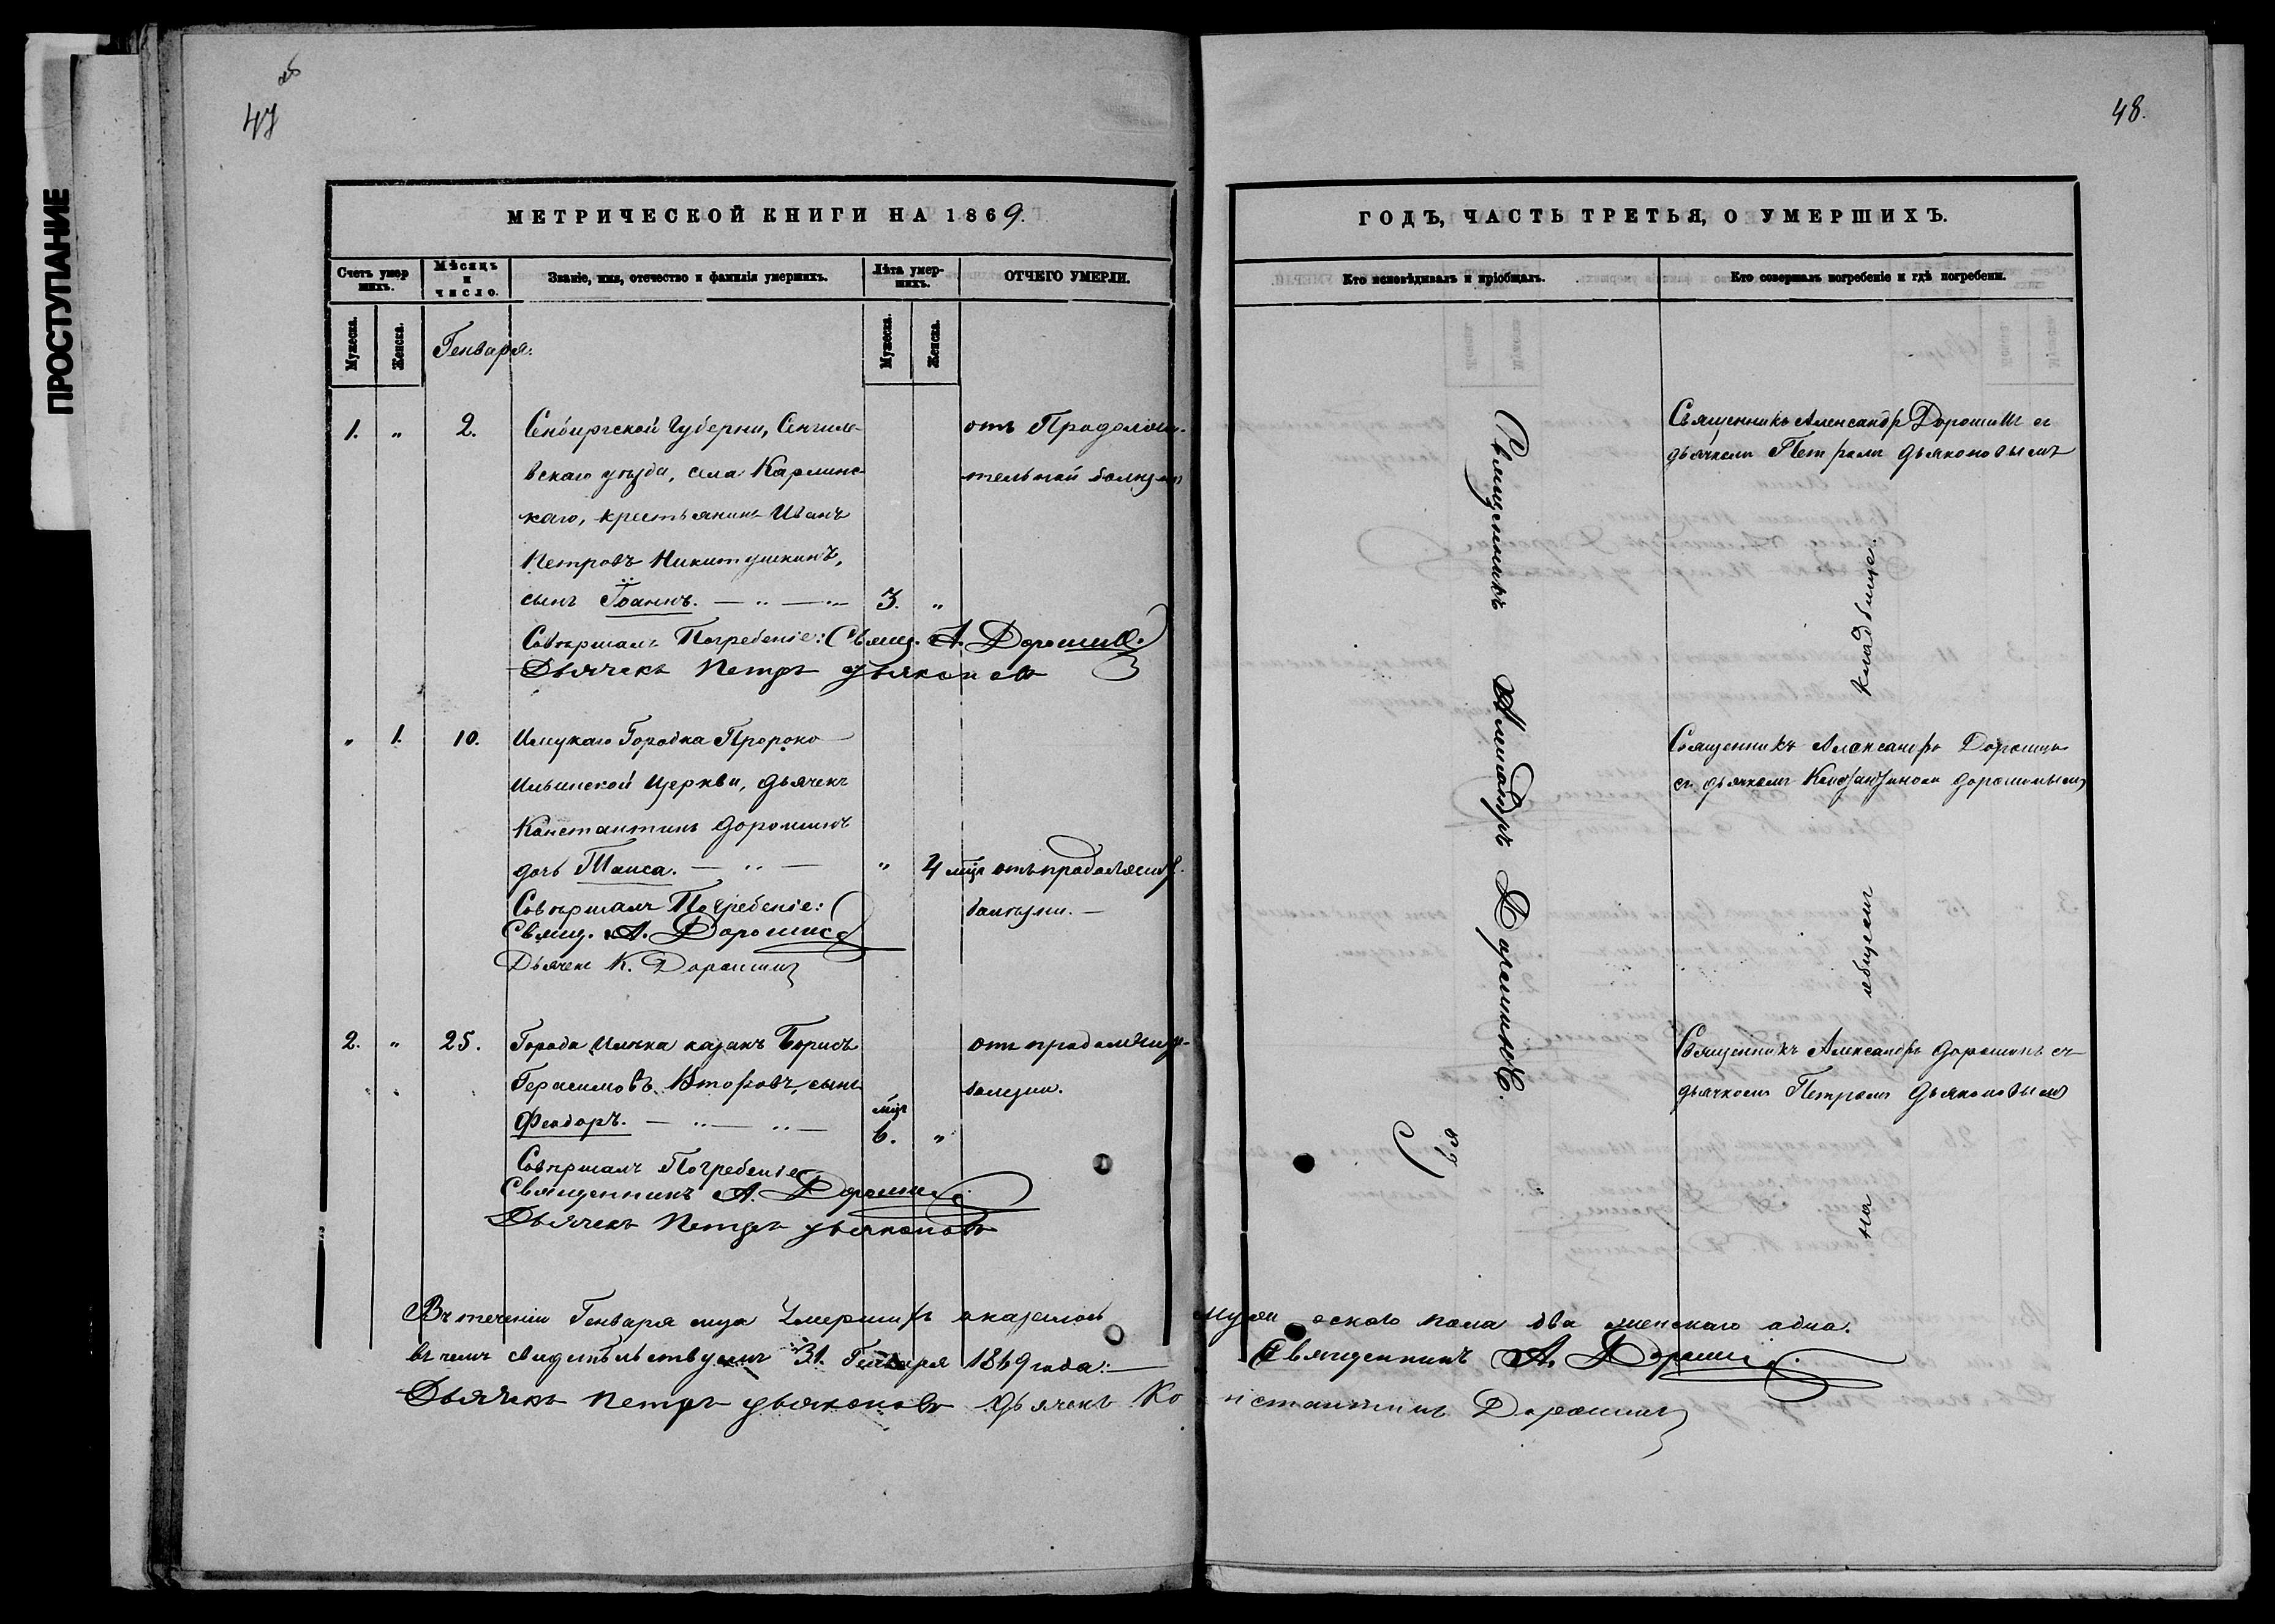 ПРОСТУПАНИЕ
47
МЕТРИЧЕСКОЙ КНИГИ НА 1869.
Счетъ умершихъ.
Мѣсяцъ и число.
Званіе, имя, отечество и фамилія умершихъ.
Лѣта умершихъ.
ОТЧЕГО УМЕРЛИ.
Мужеска.
Женска.
Генваря:
Мужеска.
Женска.
1. „ 2. Сенбиргской Губерни, Сенгиле- отъ Продолжи-
вскаго уѣзда, села Карлинс- тельной болѣзни
каго, крестьянинъ Иванъ
Петровъ Никитушкинъ,
сынъ Іоаннъ. — „ — „ 3. „
Совершалъ Погребеніе: Свящ. А. Дорошинъ
Дьячекъ Петръ Дьяконовъ
„ 1. 10. Илецкаго Городка Пророко
Ильинской Церкви, дьячекъ
Константинъ Дорошинъ
дочь Таиса. — „ — „ 4 мѣс отъ продолжит.
Совершалъ Погребеніе: болѣзни. —
Свящ. А. Дорошинъ
Дьячекъ К. Дорошинъ
2. „ 25. Города Илека казакъ Борисъ отъ продолжит-
Герасимовъ Второвъ, сынъ болезни.
Феодоръ. — „ — „ — мѣс 6. „
Совершалъ Погребеніе
Священникъ А. Дорошинъ
Дьячекъ Петръ Дьяконовъ
48.
ГОДЪ, ЧАСТЬ ТРЕТЬЯ, О УМЕРШИХЪ.
Кто исповѣдивалъ и пріобщалъ.
Кто совершалъ погребеніе и гдѣ погребени.
Священникъ Александръ Дорошинъ.
Священникъ Александръ Дорошинъ съ
дьячкомъ Петромъ Дьяконовымъ
Священникъ Александръ Дорошинъ
съ дьячкомъ Константиномъ Дорошинымъ
Священникъ Александръ Дорошинъ съ
дьячкомъ Петромъ Дьяконовымъ
на общемъ кладбище.
Въ теченіи Генваря мца Умершихъ оказалось мужескаго пола два женскаго одна.
въ чемъ свидетельствуемъ 31. Генваря 1869 года: — Священникъ А. Дорошинъ.
Дьячекъ Петръ Дьяконовъ Дьячекъ Константинъ Дорошинъ